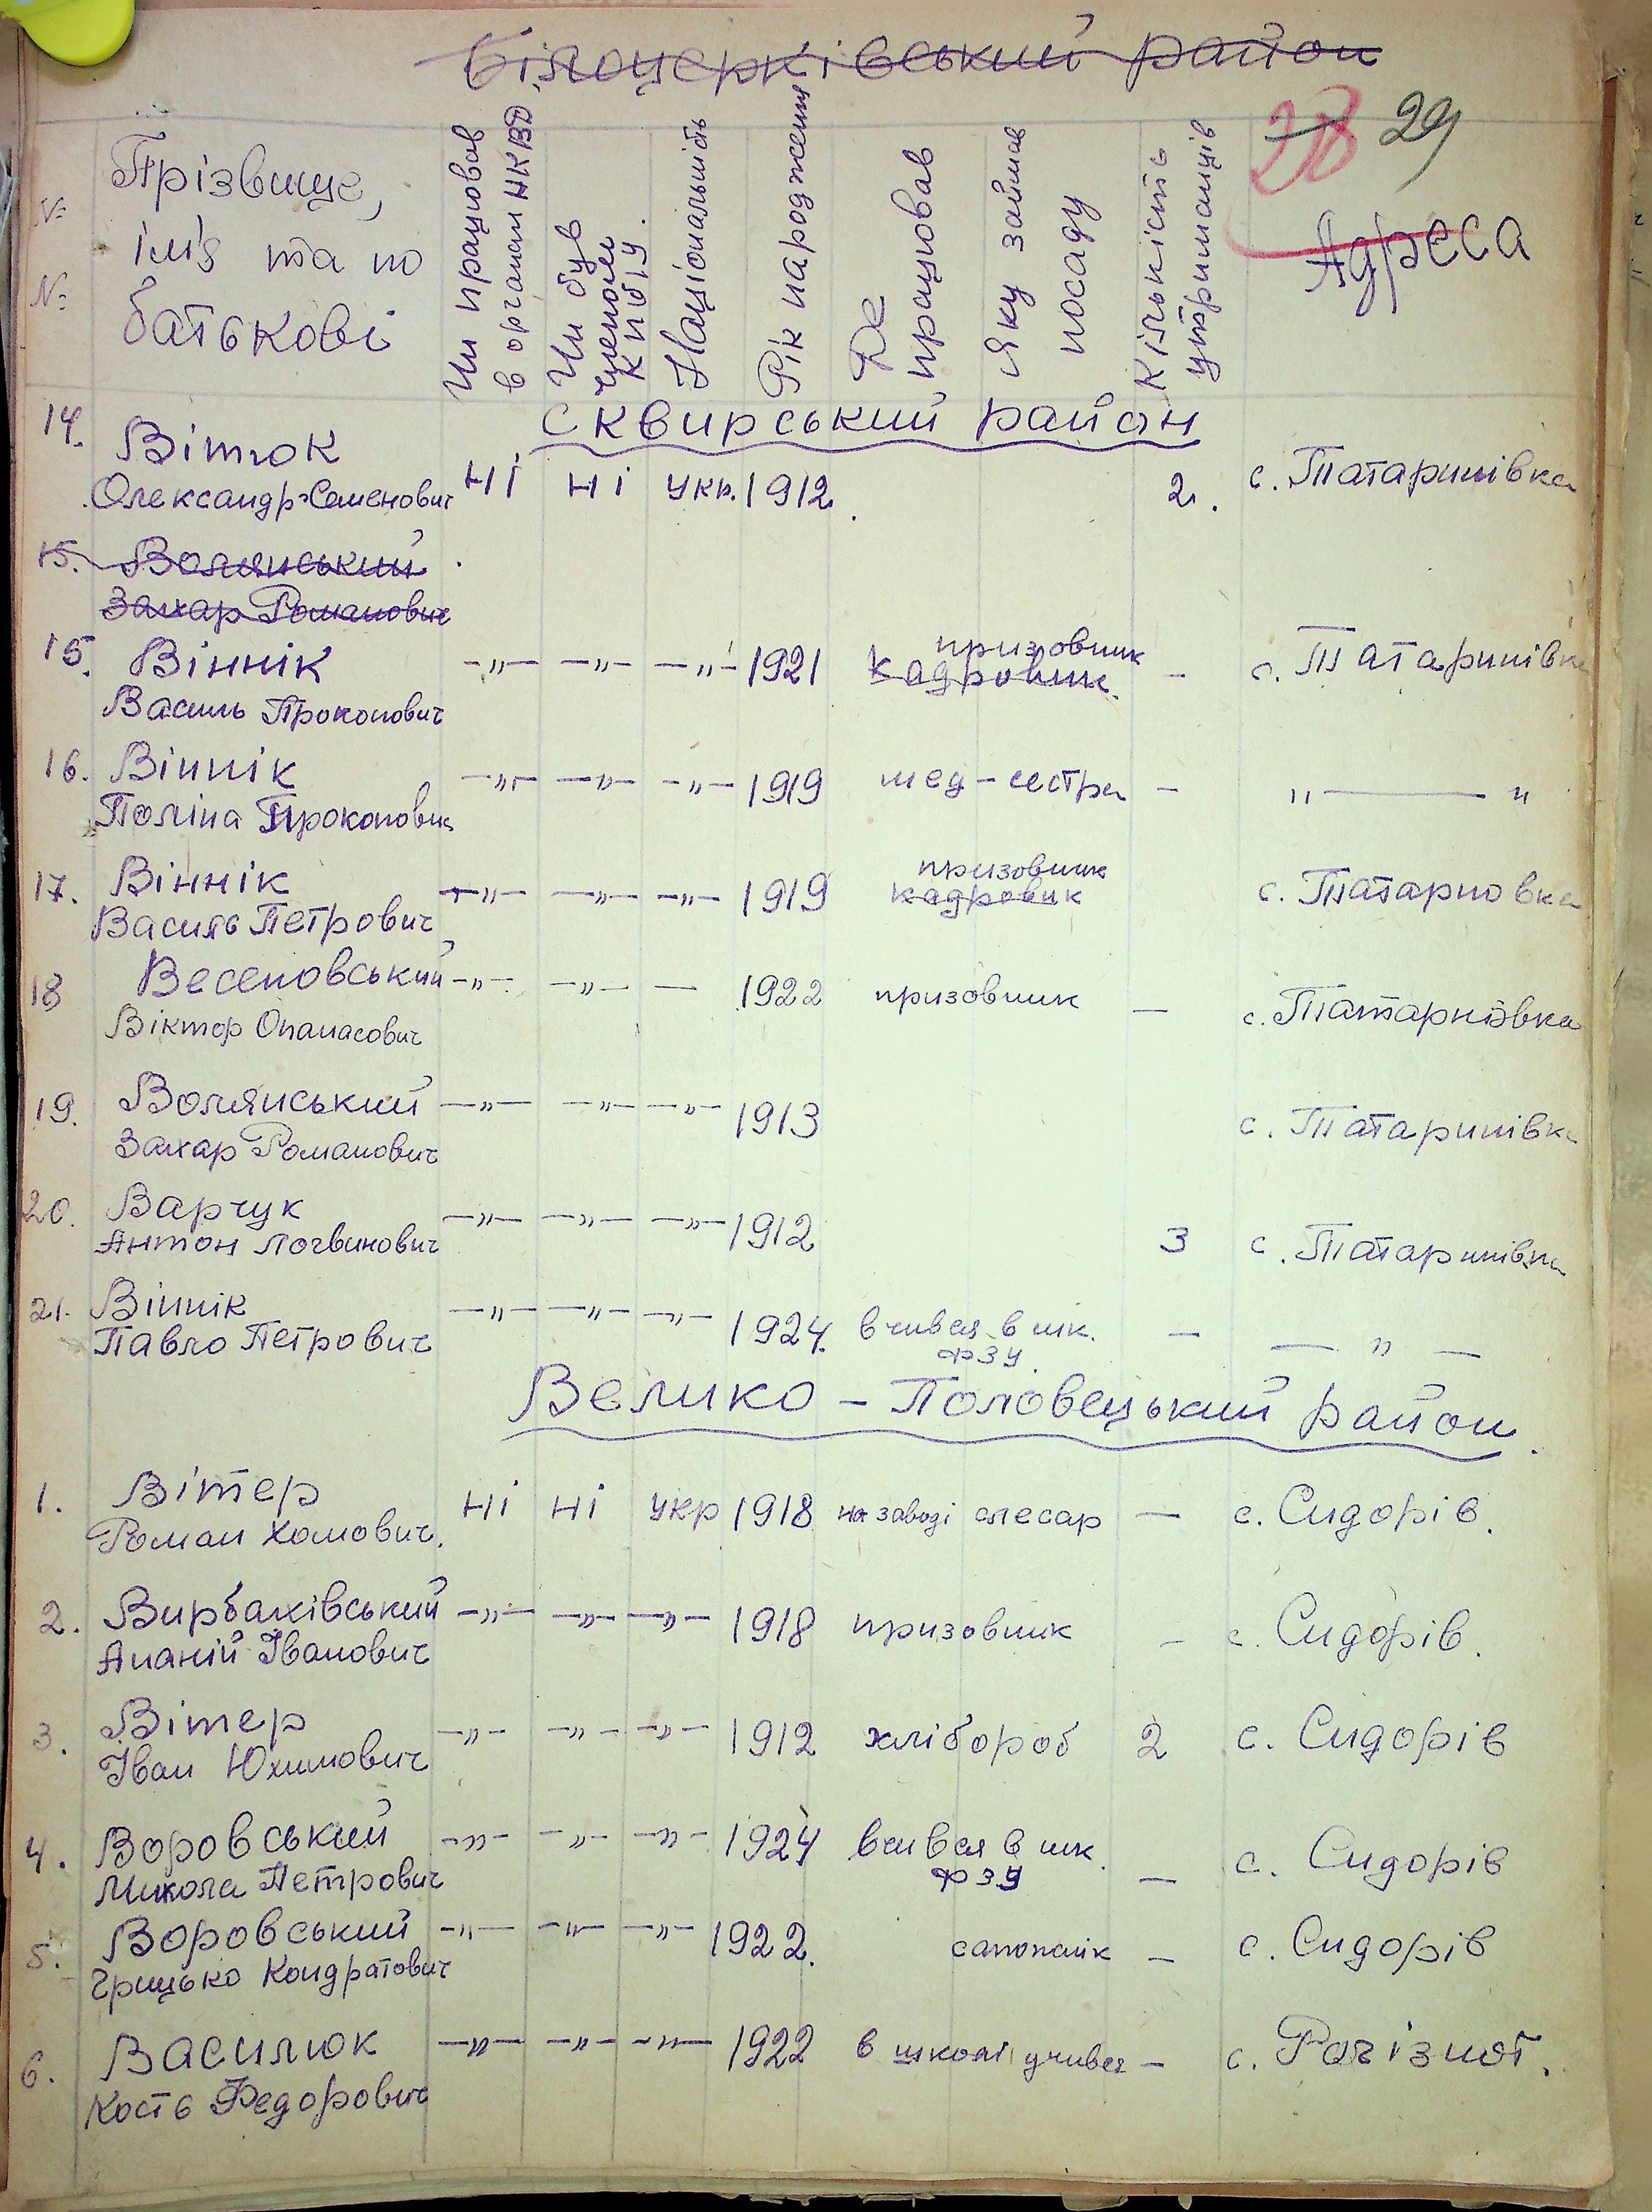 Білоцерківський район
28 29
№ №
Прізвище,
ім'я та по
батькові
Чи працював
в органах НКВД
Чи був
членом
КПбУ.
Національність
Рік народження
Де
працював
Яку займав
посаду
Кількість
утриманців
Адреса
Сквирський район
14. Вітюк
Олександр Семенович ні ні укр. 1912. 2. с. Татаринівка
15. Волянський
Захар Романович
призовник
15. Віннік -„- -„- -„- 1921 кадровик. - с. Татаринівка
Василь Прокопович
16. Віннік -„- -„- -„- 1919 мед-сестра - „ — „
Поліна Прокоповна
призовник
17. Віннік -„- -„- -„- 1919 кадровик с. Татарновка
Василь Петрович
18 Весеновський -„- -„- — 1922 призовник — с. Татарнівка
Віктор Опанасович
19. Волянський -„- -„- -„- 1913 с. Татаринівка
Захар Романович
20. Варчук -„- -„- -„- 1912 3 с. Татаринівка
Антон Логвинович
21. Віннік -„- -„- -„- 1924. вчився в шк. - — „ —
Павло Петрович ФЗУ.
Велико-Половецький район.
1. Вітер ні ні укр 1918 на заводі слесар — с. Сидорів.
Роман Хомович.
2. Вирбахівський -„- -„- -„- 1918 призовник - с. Сидорів.
Ананій Іванович
3. Вітер -„- -„- -„- 1912 хлібороб 2 с. Сидорів
Іван Юхимович
4. Воровський -„- -„- -„- 1924 вчився в шк. — с. Сидорів
Микола Петрович ФЗУ
5. Воровський -„- -„- -„- 1922. сапожнік — с. Сидорів
Грицько Кондратович
6. Василюк -„- -„- -„- 1922 в школі учився — с. Рогізнот.
Кость Федорович